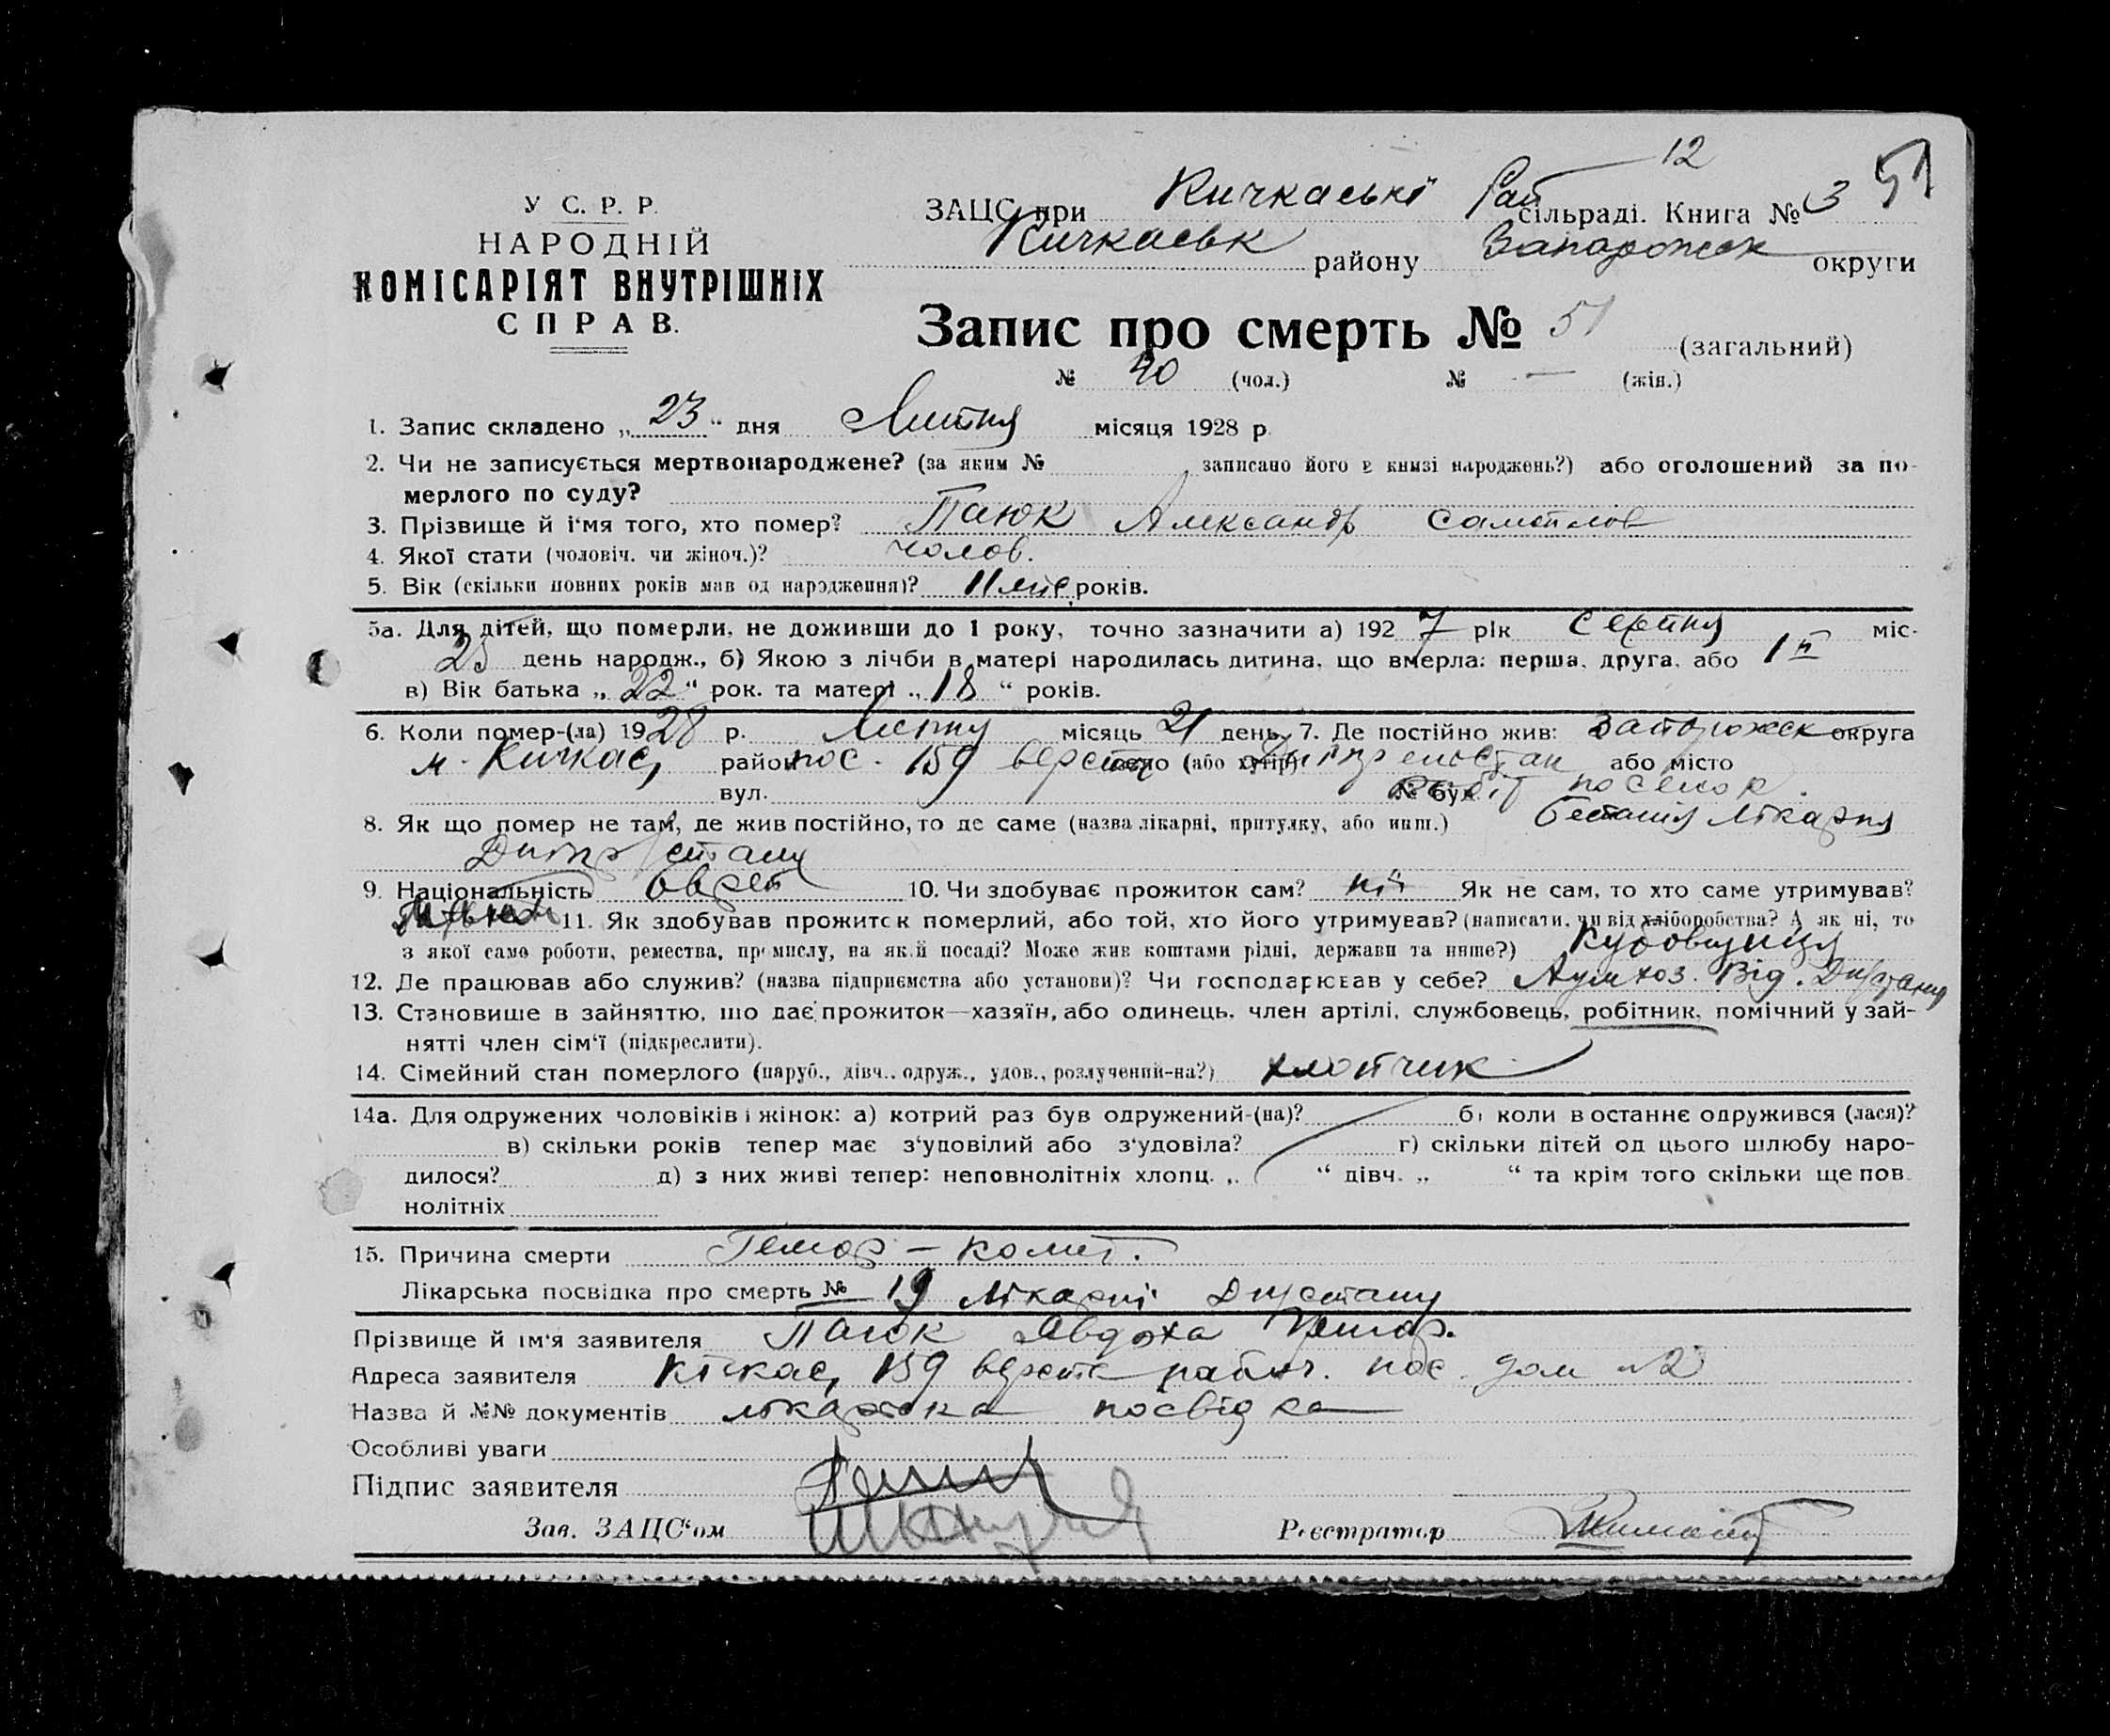 12
У С. Р. Р.
НАРОДНІЙ
КОМІСАРІЯТ ВНУТРІШНІХ
СПРАВ.
ЗАЦС при Кичкаські Рай сільраді. Книга № 3 51
Кичкаськ району Запорожск округи
Запис про смерть № 51 (загальний)
№ 40 (чол.) № — (жін.)
1. Запис складено „23“ дня Липня місяця 1928 р.
2. Чи не записується мертвонароджене? (за яким № записано його в книзі народжень?) або оголошений за по-
мерлого по суду?
3. Прізвище й і'мя того, хто помер? Паюк Александр Самойлов
4. Якої стати (чоловіч. чи жіноч.)? чолов.
5. Вік (скільки повних років мав од народження)? 11 міс років.
5а. Для дітей, що померли, не доживши до 1 року, точно зазначити а) 1927 рік Серпня міс.
25 день народж., б) Якою з лічби в матері народилась дитина, що вмерла: перша, друга, або 1
в) Вік батька „22“ рок. та матері „18“ років.
6. Коли помер-(ла) 1928 р. Липня місяць 21 день. 7. Де постійно жив: Запорожск округа
м. Кичкас, район пос. 159 верста село (або хутір) або місто
вул. № буд. поселок
8. Як що помер не там, де жив постійно, то де саме (назва лікарні, притулку, або инш.) лікарня
9. Національність 10. Чи здобуває прожиток сам? ні Як не сам, то хто саме утримував?
11. Як здобував прожиток померлий, або той, хто його утримував? (написати, чи від хліборобства? А як ні, то
з якої саме роботи, ремества, промислу, на якій посаді? Може жив коштами рідні, держави та инше?)
12. Де працював або служив? (назва підприємства або установи)? Чи господарював у себе? Від.
13. Становище в зайняттю, що дає прожиток—хазяїн, або одинець, член артілі, службовець, робітник, помічний у зай-
нятті член сім'ї (підкреслити).
14. Сімейний стан померлого (паруб., дівч., одруж., удов., розлучений-на?) хлопчик
14а. Для одружених чоловіків і жінок: а) котрий раз був одружений-(на)? б) коли востаннє одружився (лася)?
в) скільки років тепер має з'удовілий або з'удовіла? г) скільки дітей од цього шлюбу наро-
дилося? д) з них живі тепер: неповнолітніх хлопц. „ “ дівч. „ “ та крім того скільки ще пов-
нолітніх
15. Причина смерти
Лікарська посвідка про смерть № 19 Лікарні Дпрстану
Прізвище й ім'я заявителя Паюк Явдоха
Адреса заявителя Кічкас, 159 верста рабоч. пос. дом №2
Назва й №№ документів лікарська посвідка
Особливі уваги
Підпис заявителя
Зав. ЗАЦС'ом Реєстратор